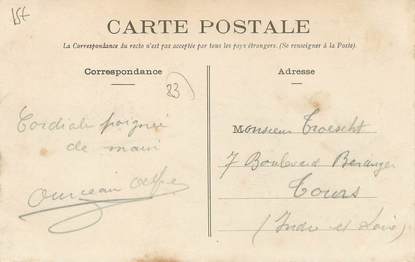 15€
CARTE POSTALE
La Correspondance du recto n'est pas acceptée par tous les pays étrangers. (Se renseigner à la Poste).
Correspondance
Adresse
23
Cordiale poignée
de main
Monsieur
7 Boulevard Béranger
Tours
(Indre et Loire)